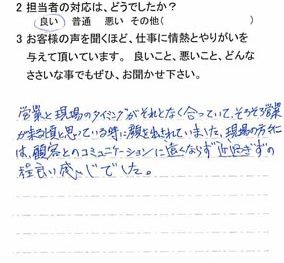 2 担当者の対応は、どうでしたか?
良い 普通 悪い その他(
3 お客様の声を聞くほど、仕事に情熱とやりがいを
与えて頂いています。 良いこと、悪いこと、どんな
ささいな事でもぜひ、お聞かせ下さい。
営業と現場のタイミングがそれとなく合っていて、そろそろ営業
が来る頃と思っている時に顔を出されていました。現場の方々に
は、顧客とのコミュニケーションに遠くならず近過ぎずの
程良い感じでした。